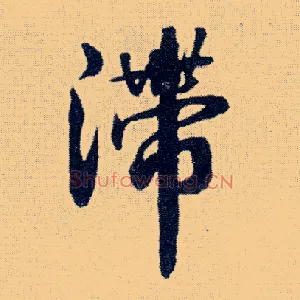 滞
Shufawang.CN